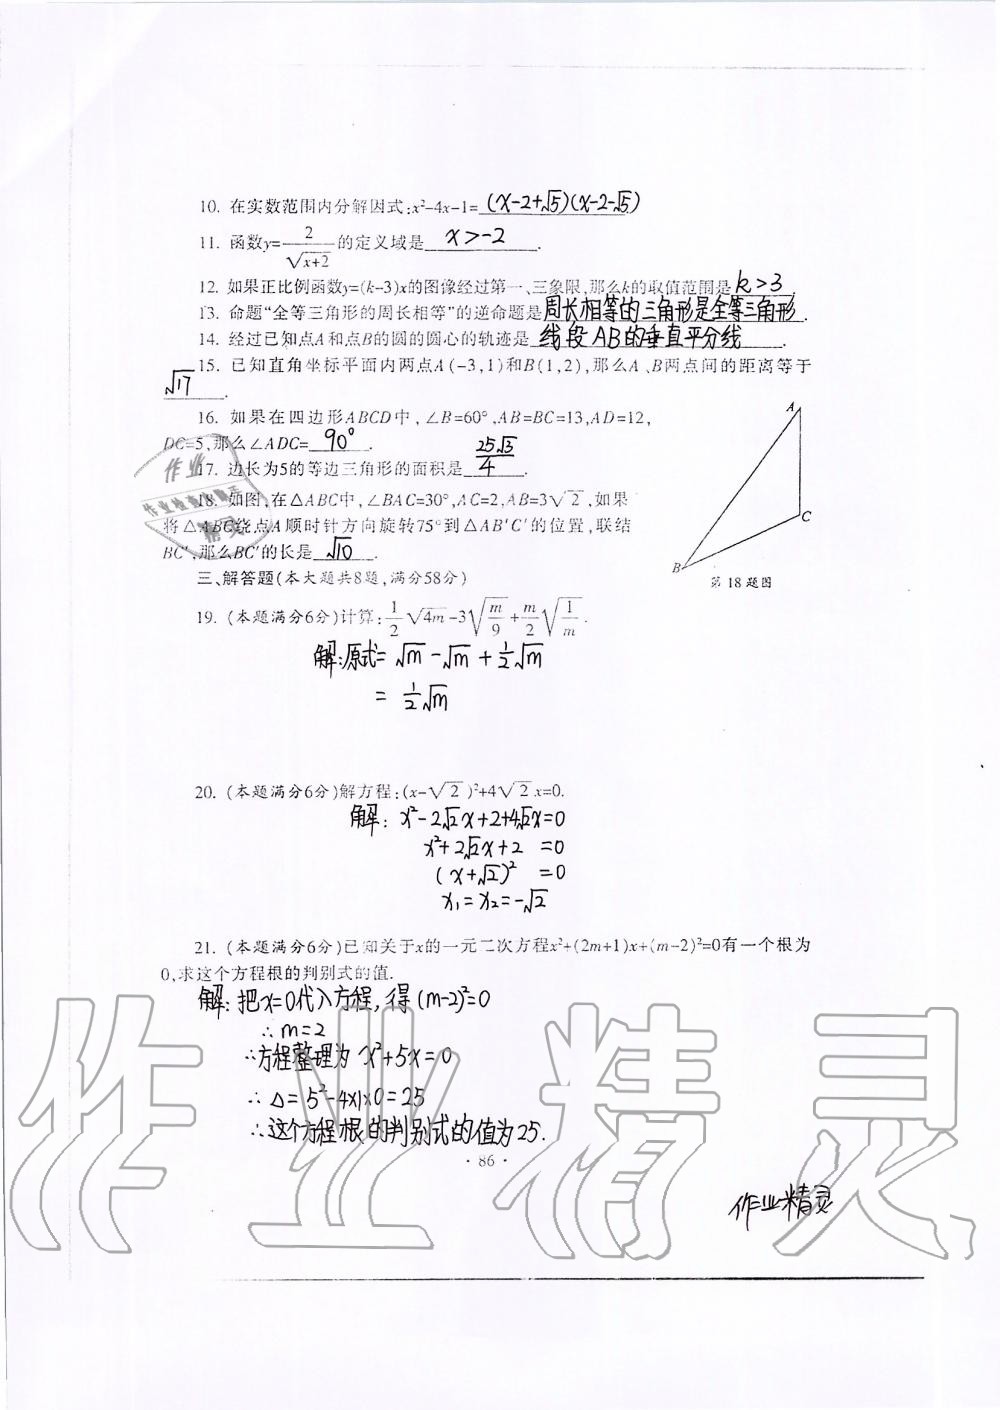 10. 在实数范围内分解因式:x²-4x-1=(x-2+√5)(x-2-√5)
11. 函数y=2/√(x+2)的定义域是 x>-2 .
12. 如果正比例函数y=(k-3)x的图像经过第一、三象限,那么k的取值范围是 k>3 .
13. 命题“全等三角形的周长相等”的逆命题是周长相等的三角形是全等三角形.
14. 经过已知点A和点B的圆的圆心的轨迹是 线段AB的垂直平分线 .
15. 已知直角坐标平面内两点A(-3,1)和B(1,2),那么A、B两点间的距离等于
√17 .
16. 如果在四边形ABCD中,∠B=60°,AB=BC=13,AD=12,
DC=5,那么∠ADC= 90° .
17. 边长为5的等边三角形的面积是 25√3/4 .
18. 如图,在△ABC中,∠BAC=30°,AC=2,AB=3√2,如果
将△ABC绕点A顺时针方向旋转75°到△AB′C′的位置,联结
BC′,那么BC′的长是 √10 .
A
C
B
第18题图
三、解答题(本大题共8题,满分58分)
19. (本题满分6分)计算:1/2√4m-3√(m/9)+m/2√(1/m).
解:原式=√m-√m+1/2√m
=1/2√m
20. (本题满分6分)解方程:(x-√2)²+4√2x=0.
解: x²-2√2x+2+4√2x=0
x²+2√2x+2 =0
(x+√2)² =0
x₁=x₂=-√2
21. (本题满分6分)已知关于x的一元二次方程x²+(2m+1)x+(m-2)²=0有一个根为
0,求这个方程根的判别式的值.
解: 把x=0代入方程, 得(m-2)²=0
∴m=2
∴方程整理为 x²+5x=0
∴△=5²-4×1×0=25
∴这个方程根的判别式的值为25.
·86·
作业精灵
作业精灵
作业
作业检查小助手
精灵